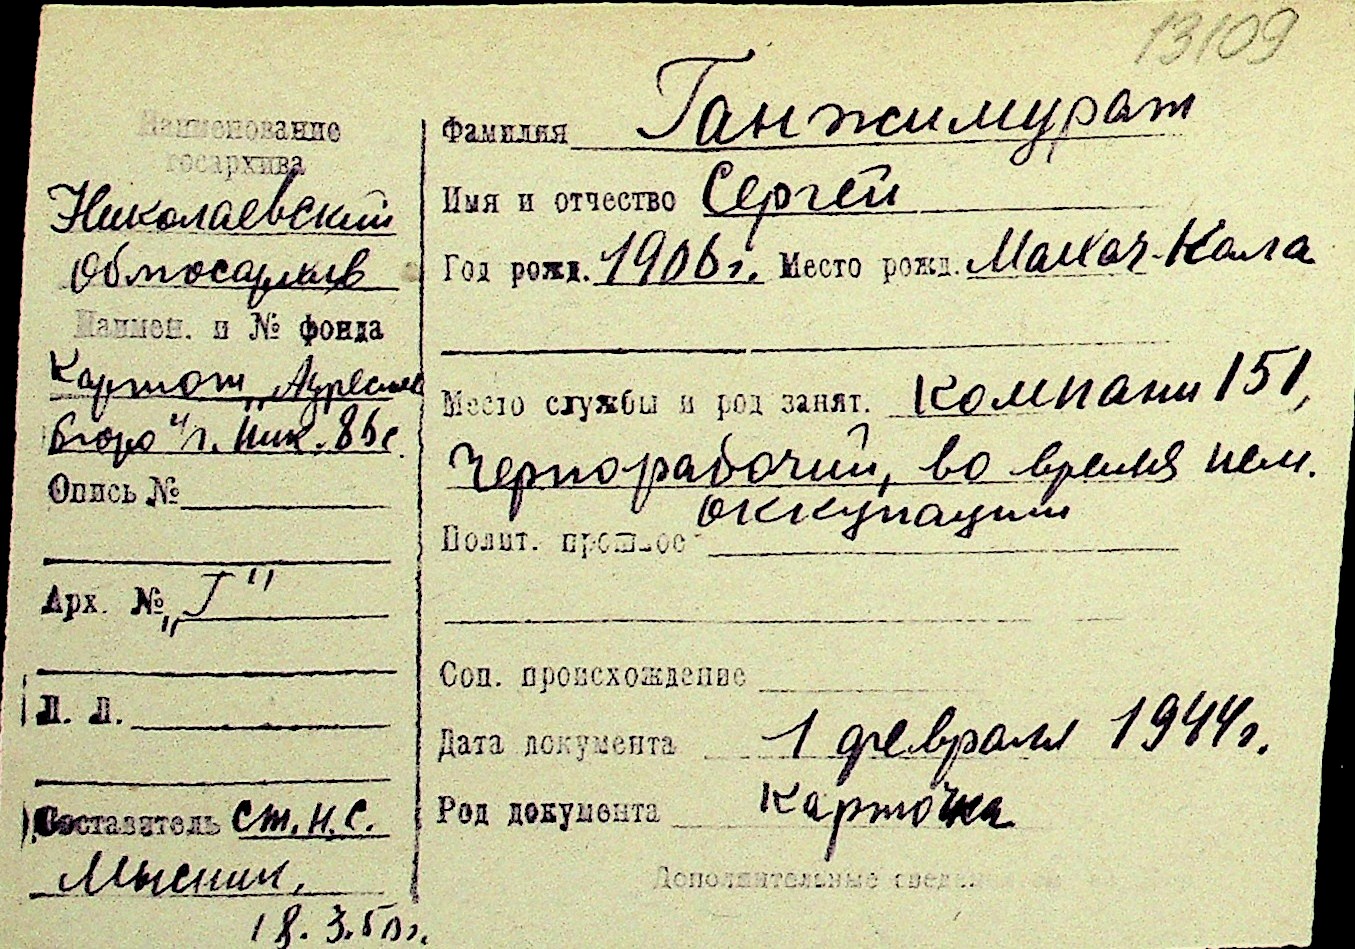 13109
Наименование
госархива
Николаевский
Облгосархив
Наимен. и № фонда
Картот. „Адресное
бюро" г. Ник.
Опись №
Арх. № „Г"
Л. Л.
Составитель ст. н. с.
18. 3. 50 г.
Фамилия Ганжимурат
Имя и отчество Сергей
Год рожд. 1906 г. Место рожд. Махач-Кала
Место службы и род занят. Компани 151,
Чернорабочий, во время нем.
оккупации
Полит. прошлое
Соц. происхождение
Дата документа 1 февраля 1944 г.
Род документа Карточка
Дополнительные сведения